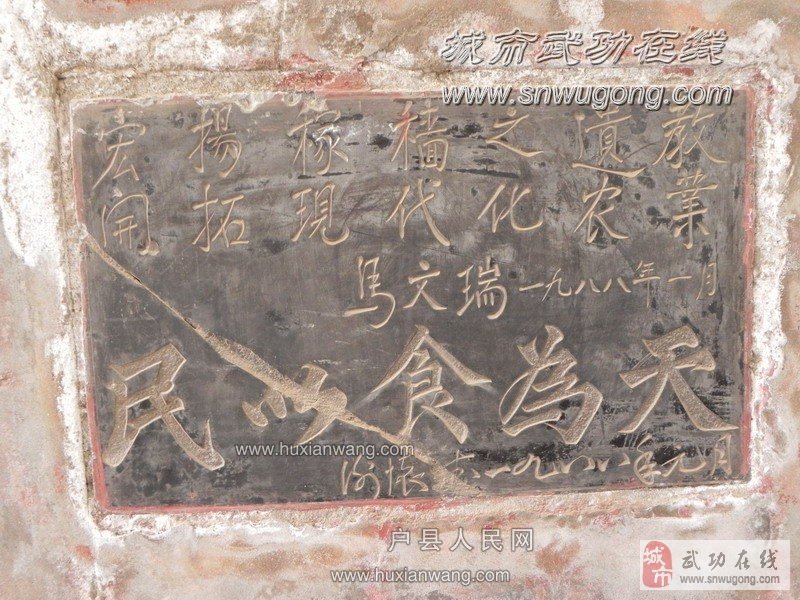 城市武功在线
www.snwugong.com
宏揚稼穡之遺教
開拓現代化农業
馬文瑞一九八八年一月
民以食為天
www.huxianwang.com
一九八八年元月
户县人民网
www.huxianwang.com
城市
武功在线
www.snwugong.com